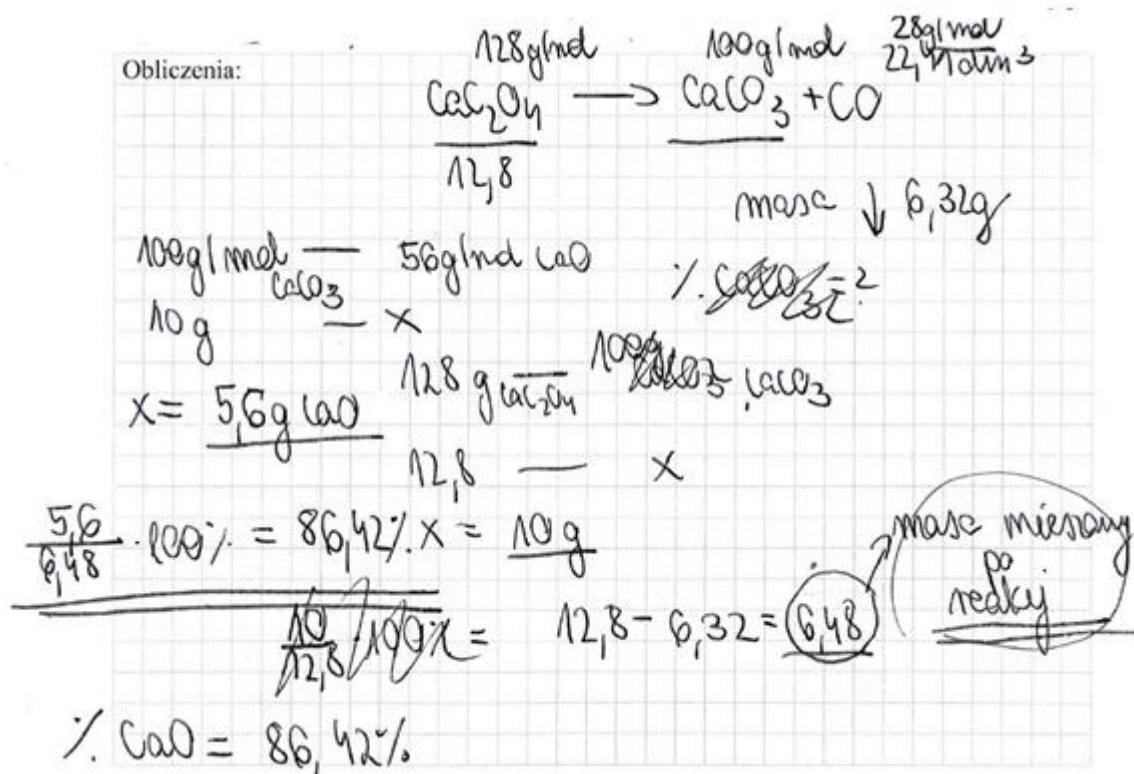 Obliczenia:
128g/mol 100g/mol 28g/mol
22,4 dm³
CaC₂O₄ → CaCO₃ + CO
12,8
masa ↓ 6,32g
100g/mol CaCO₃ — 56g/mol CaO
10g — x
x = 5,6g CaO
128 g CaC₂O₄ — 100g CaCO₃
12,8 — x
x = 10g
5,6/6,48 · 100% = 86,42%
10/12,8 · 100% =
12,8 - 6,32 = 6,48
masa mieszany
po
reakcj
% CaO = 86,42%